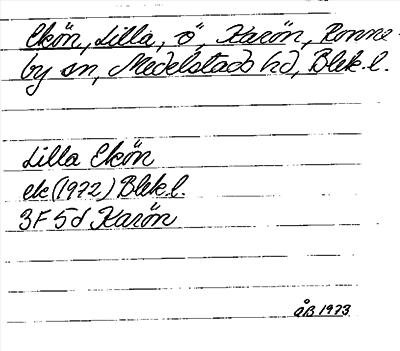 Ekön, Lilla, ö, Karön, Ronne-
by sn, Medelstads hd, Blek. l.
Lilla Ekön
ek (1972) Blek. l.
3F 5d Karön
ÅB 1973